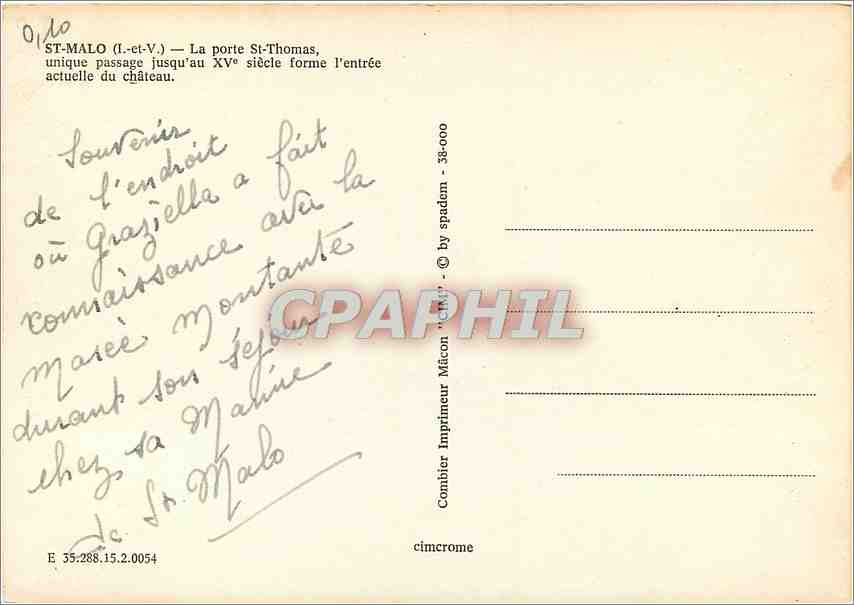 0,10
ST-MALO (I.-et-V.) — La porte St-Thomas,
unique passage jusqu'au XVe siècle forme l'entrée
actuelle du château.
Souvenir
de l'endroit
où Graziella a fait
connaissance avec la
Marée Montante
durant son séjour
chez sa Marine
de St. Malo
E 35.288.15.2.0054
Combier Imprimeur Mâcon "CIM" - © by spadem - 38-000
cimcrome
CPAPHIL